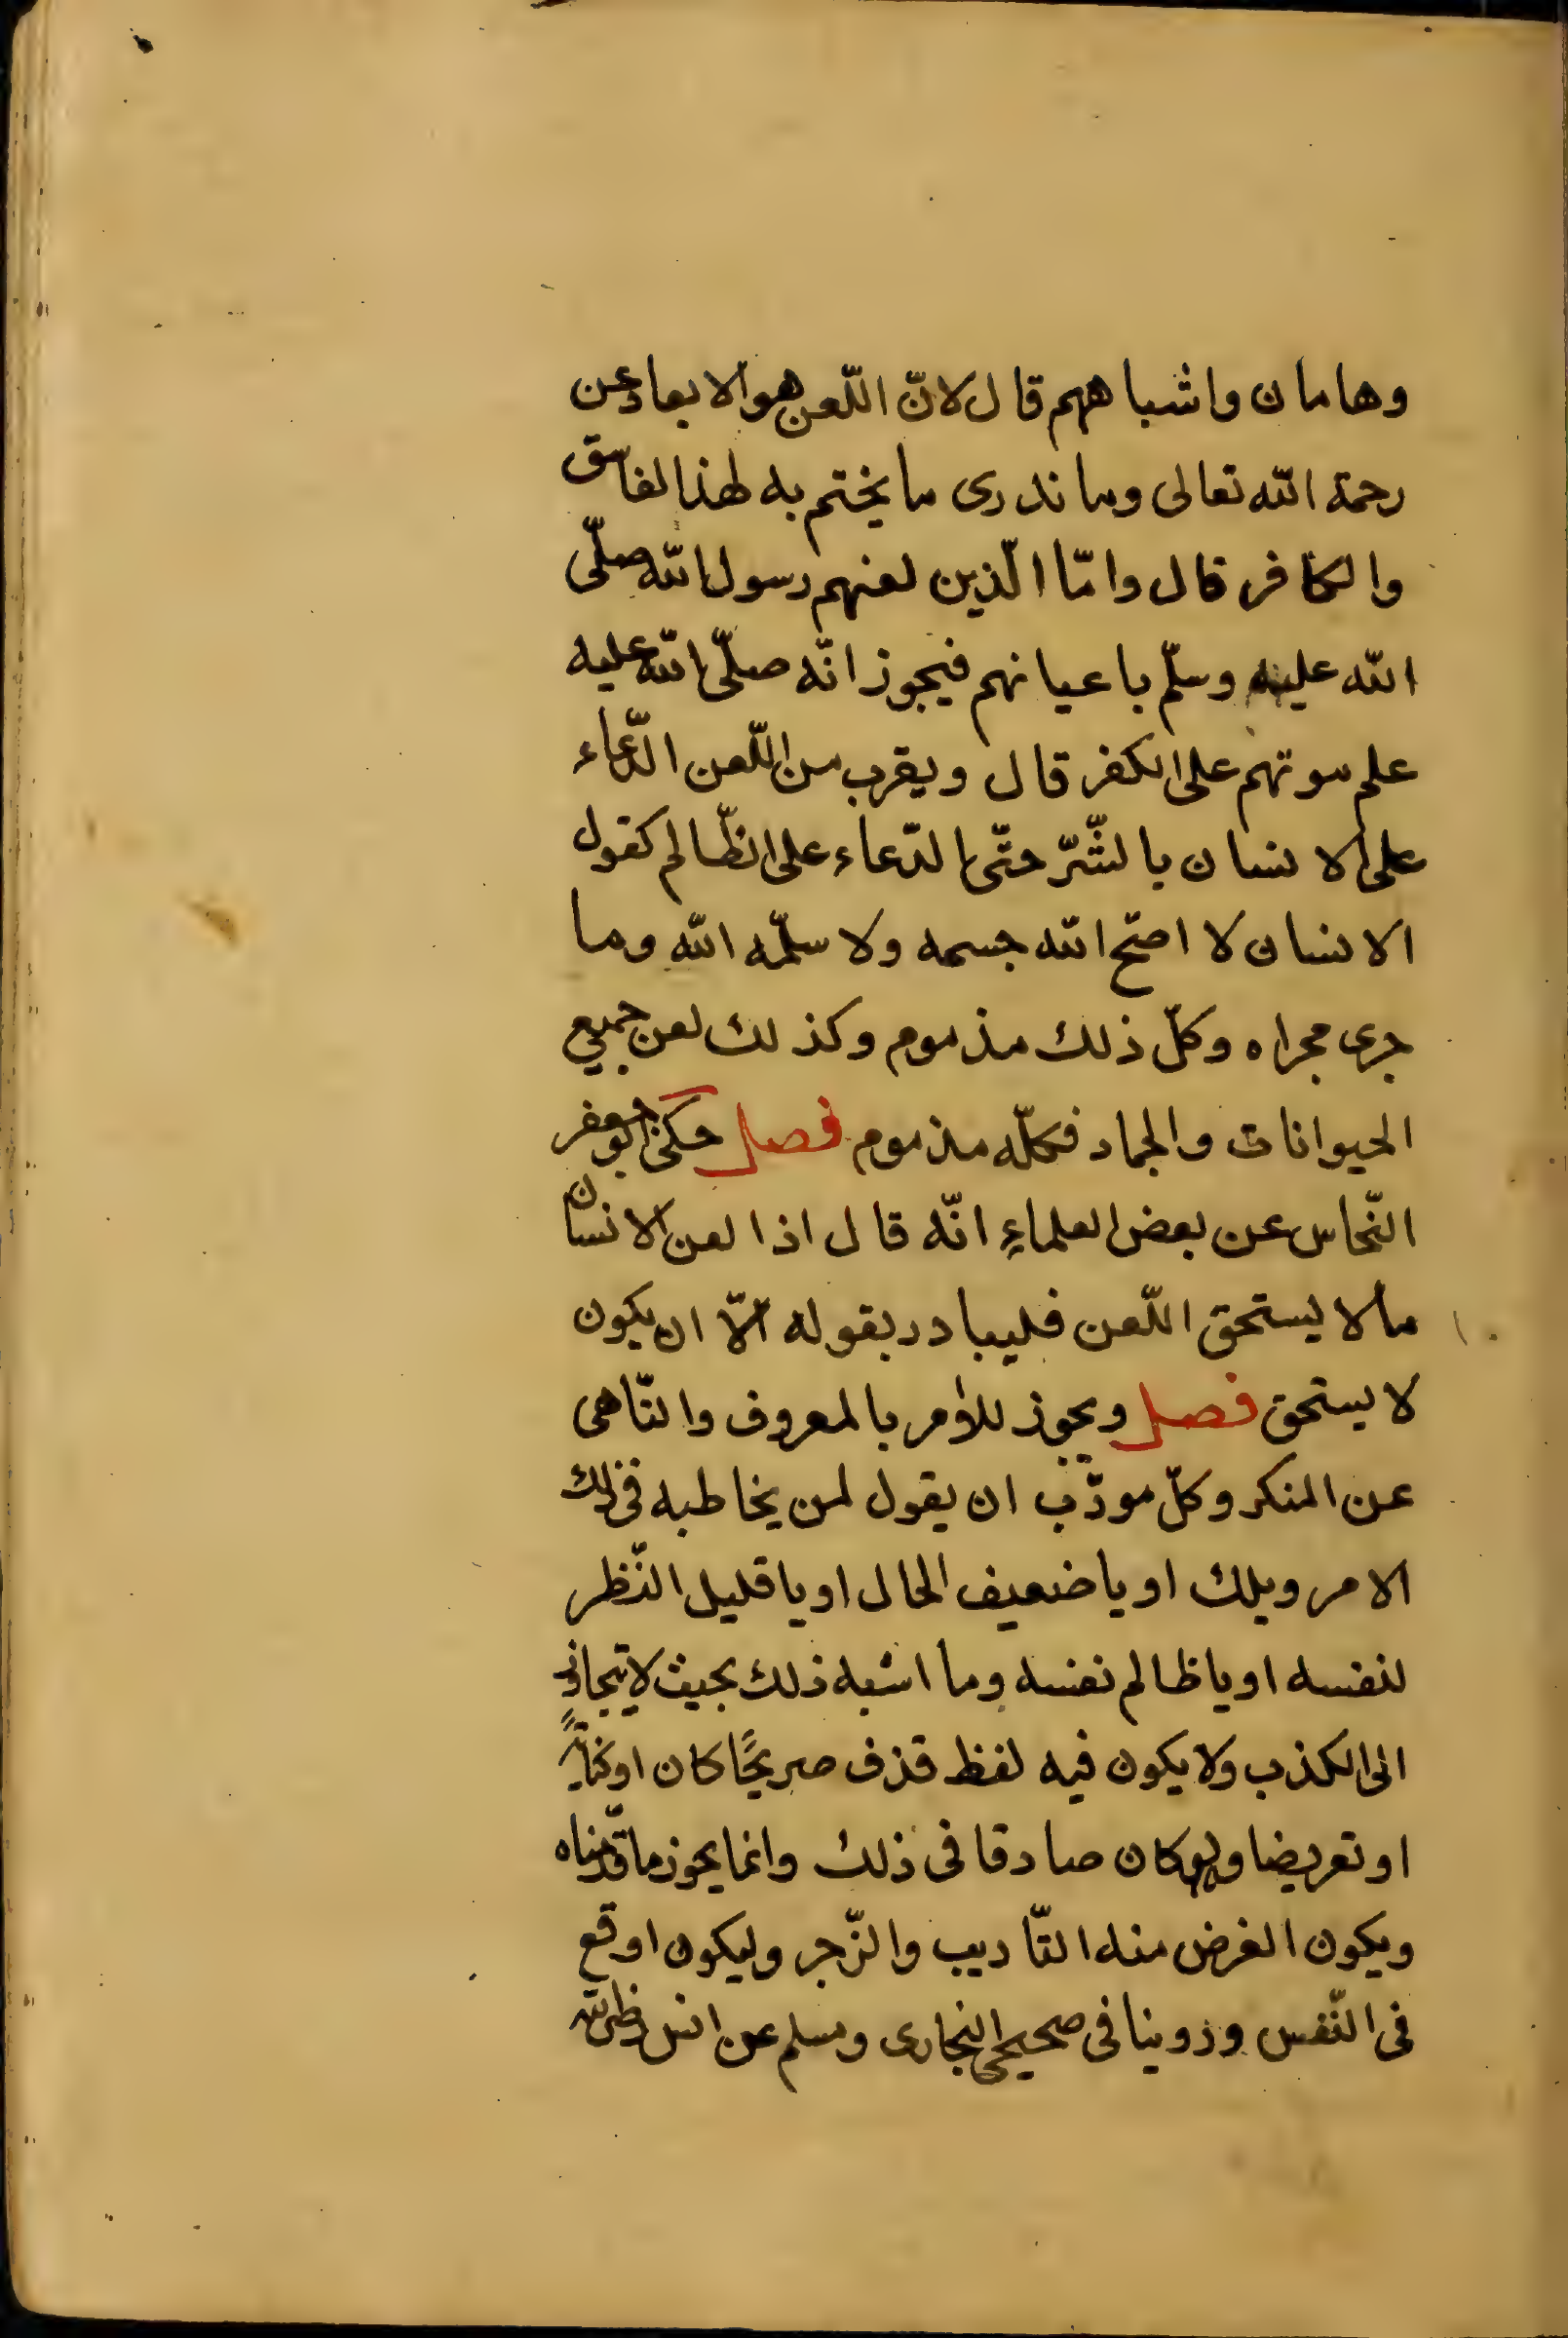 وهامان واشباههم قال لانّ اللّعن هو الابعاد عن
رحمة اللّه تعالى وما ندرى ما يختم به لهذا لفاسق
والكافر قال وامّا الّذين لعنهم رسول اللّه صلّى
اللّه عليه وسلّم باعيانهم فيجوز انّه صلّى اللّه عليه
علم موتهم على الكفر قال ويقرب من اللّعن الدّعاء
على الانسان بالشّرّ حتّى الدّعاء على الظّالم كقول
الانسان لا اصحّ اللّه جسمه ولا سلّمه اللّه وما
جرى مجراه وكلّ ذلك مذموم وكذلك لعن جميع
الحيوانات والجماد فكلّه مذموم فصل حكى ابو جعفر
النّحاس عن بعض العلماءِ انّه قال اذا لعن الانسان
ما لا يستحق اللّعن فليبادر بقوله الّا ان يكون
لا يستحق فصل ويجوز للاٰمر بالمعروف والنّاهى
عن المنكر وكلّ مودّب ان يقول لمن يخاطبه فى ذلك
الامر ويلك او يا ضعيف الحال او يا قليل النّظر
لنفسه او يا ظالم نفسه وما اشبه ذلك بحيث لا يتجاوز
الى الكذب ولا يكون فيه لفظ قذف صريحًا كان او كنايةً
او تعريضا ولو كان صادقا فى ذلك وانما يجوز ما قدّمناه
ويكون الغرض منه التّاديب والزّجر وليكون اوقع
فى النّفس وروينا فى صحيحى البخارى ومسلم عن انس رضى اللّه